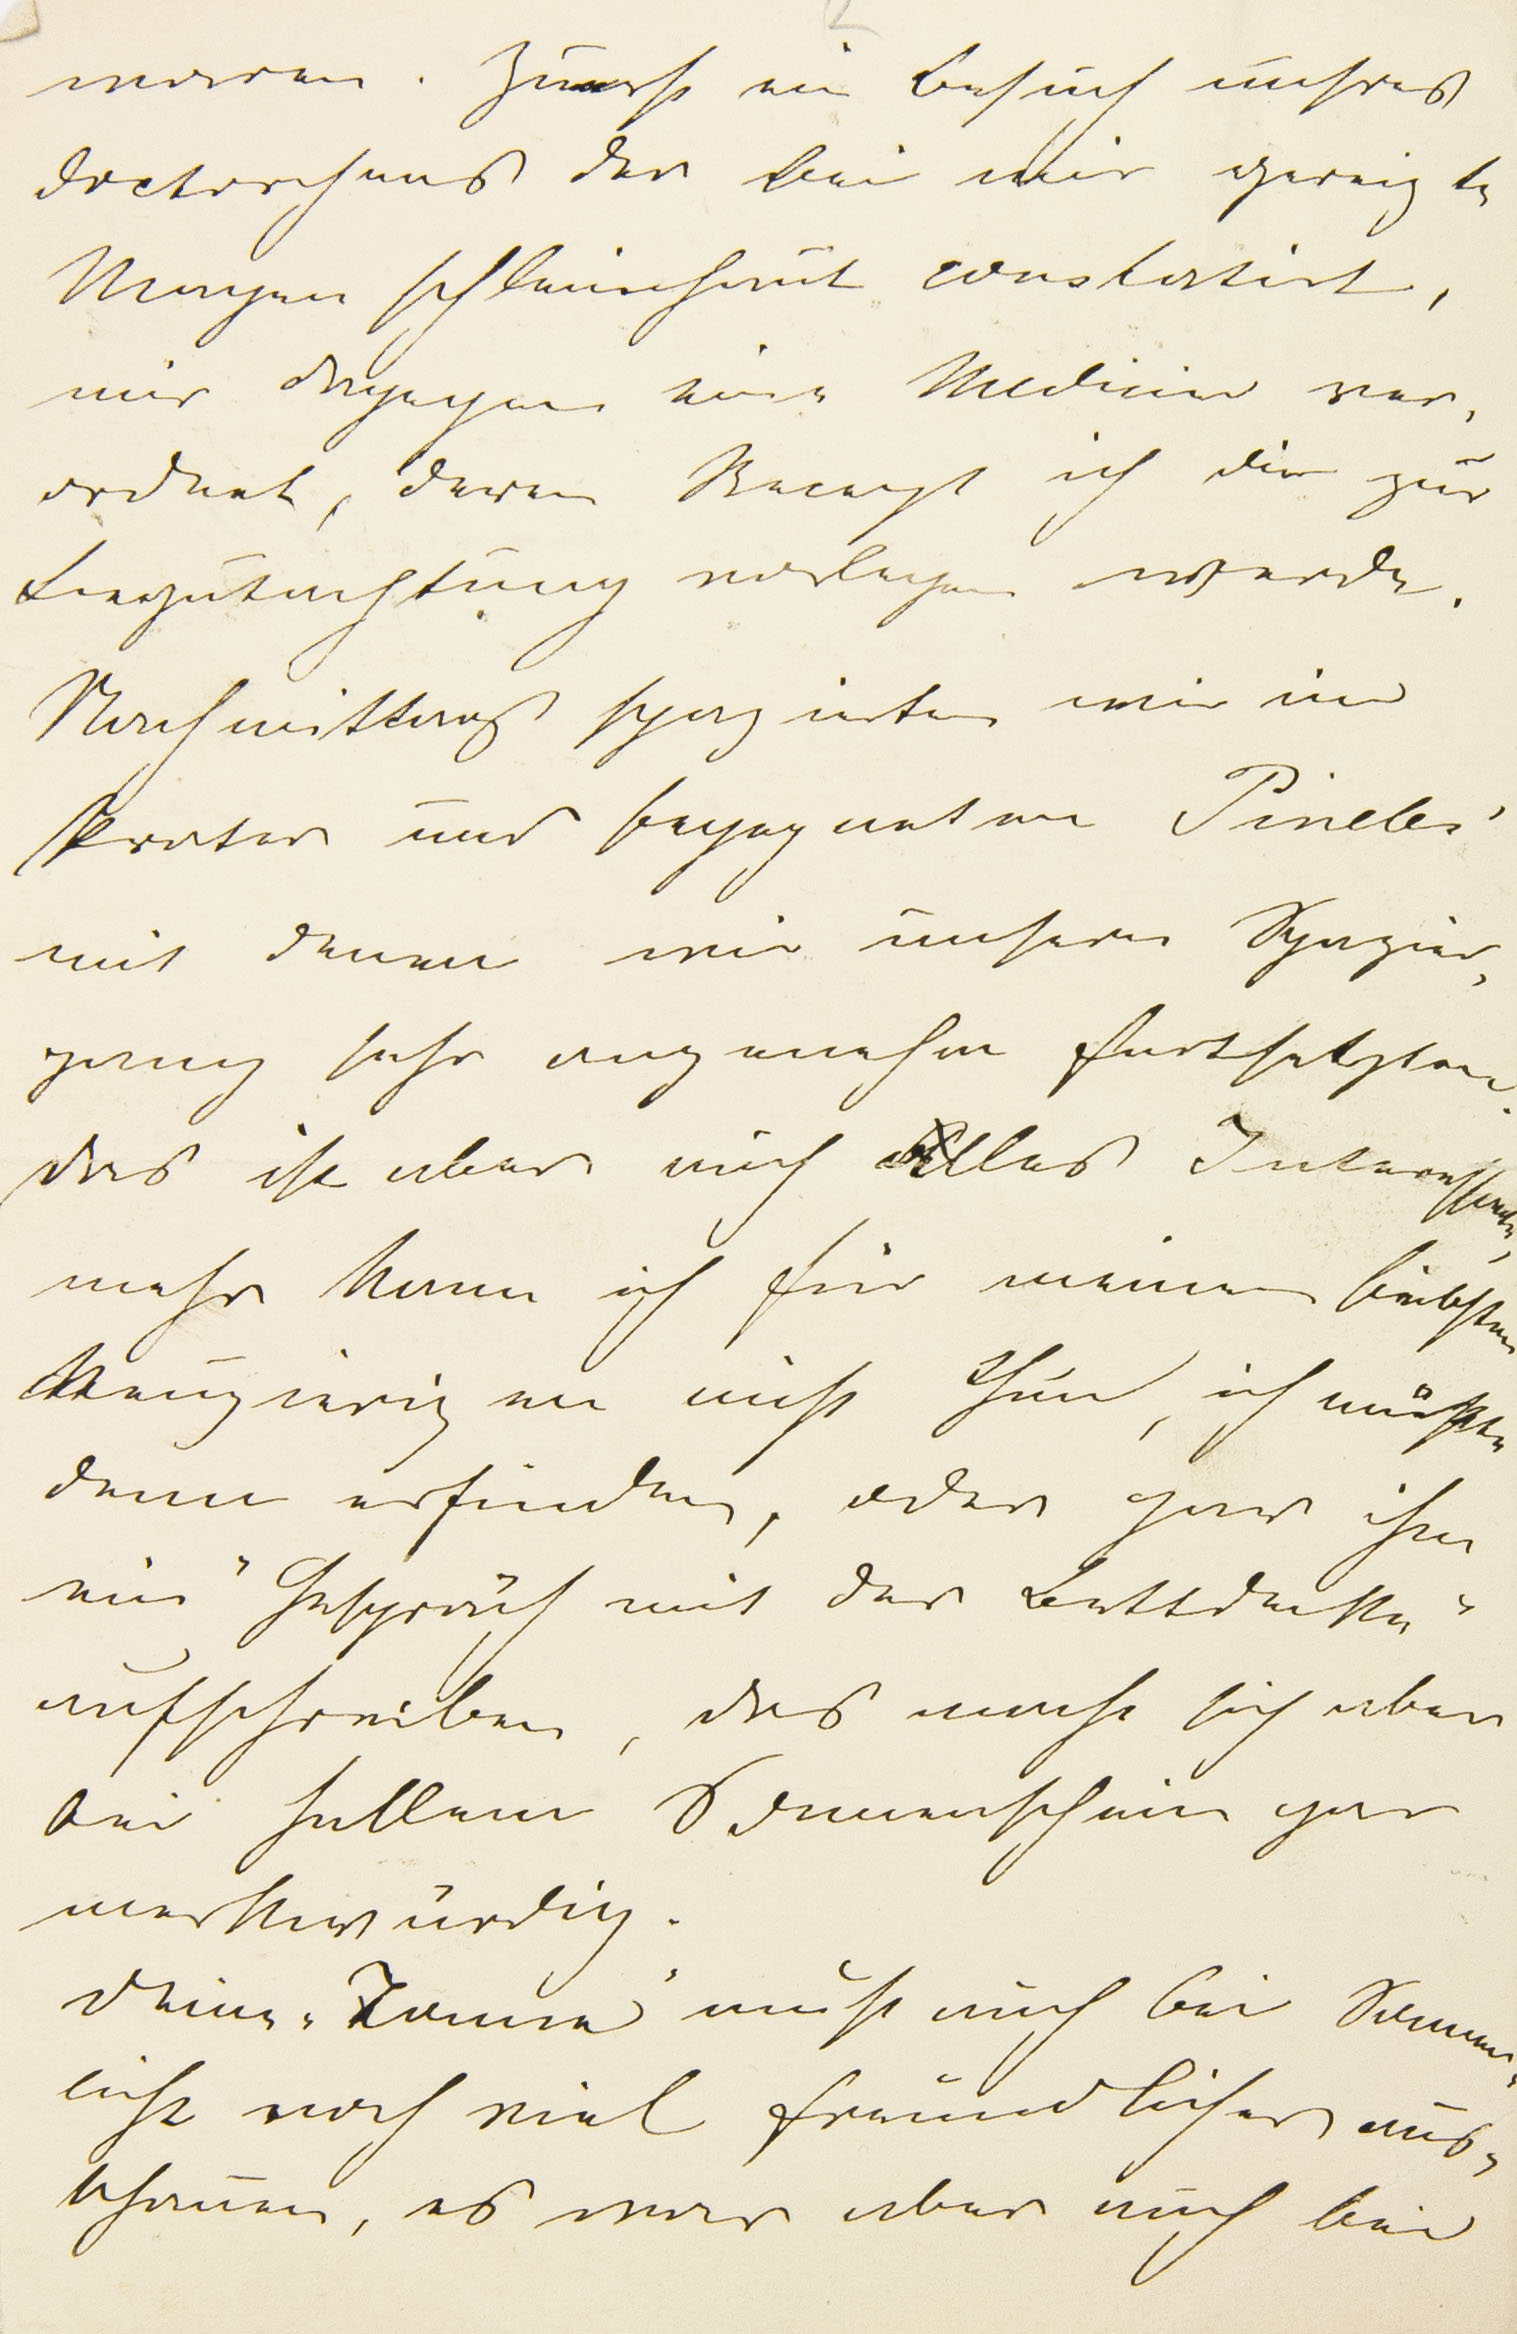 2
waren. Zuerst ein Besuch unsres
Doctorchens der bei mir gereizte
Magenschleimhaut constatirt,
mir dagegen eine Medicin ver-
ordnet, deren Recept ich dir zur
Begutachtung vorlegen werde.
Nachmittags spazierten wir im
Prater und begegneten Pineles'
mit denen wir unsern Spazier-
gang sehr angenehm fortsetzten.
das ist aber auch Alles Interessante,
mehr kann ich für meinen liebsten
Neugierigen nicht thun, ich müßte
denn erfinden, oder gar ihm
ein "Gespräch mit der Bettdecke"
aufschreiben, das macht sich aber
bei hellem Sonnenschein gar
merkwürdig.
Deine "Tanne" muß auch bei Sonnen-
licht noch viel freundlicher aus-
schauen, es war aber auch bei